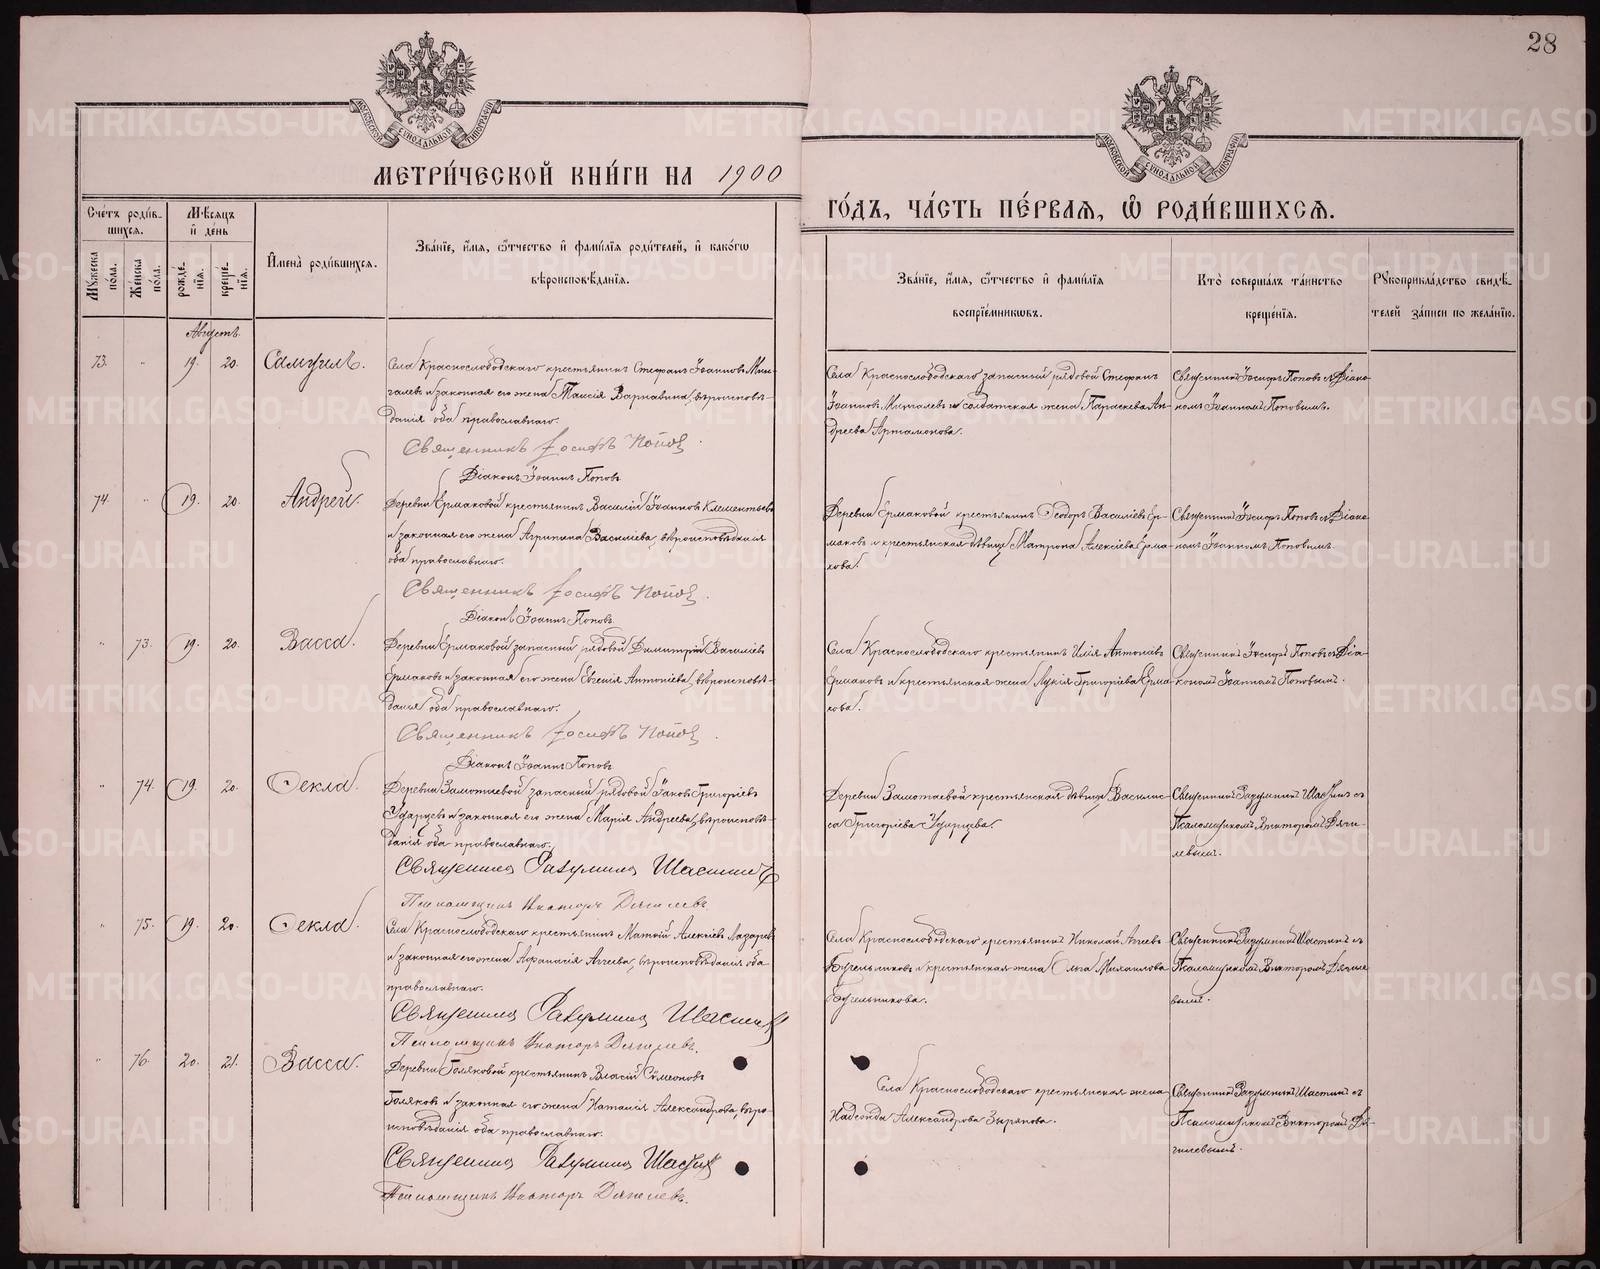 28
МОСКОВСКОЙ СУНОДАЛЬНОЙ ТИПОГРАФІИ
МОСКОВСКОЙ СУНОДАЛЬНОЙ ТИПОГРАФІИ
МЕТРИ́ЧЕСКОЙ КНИ́ГИ НА 1900
ГО́ДЪ, ЧА́СТЬ ПЕ́РВАЯ, Ѡ҆ РОДИ́ВШИХСЯ.
Сче́тъ роди́в-
шихся.
Мѣсяцъ
и҆ де́нь
Му́жеска по́ла.
Же́нска по́ла.
рожде́-
нїя.
креще́-
нїя.
И҆мена̀ роди́вшихся.
Зва́нїе, и҆́мя, ѻ҆́тчество и҆ фами́лїя роди́телей, и҆ како́гѡ
вѣроисповѣ́данїя.
Зва́нїе, и҆́мя, ѻ҆́тчество и҆ фами́лїя
воспрїе́мникѡвъ.
Кто̀ соверша́лъ та́инство
креще́нїя.
Рꙋкоприкла́дство свидѣ́-
телей за́писи по жела́нїю.
Августъ.
73. " 19. 20. Самуилъ.
Села Краснослободскаго крестьянинъ Стефанъ Іоанновъ Мин-
галевъ и законная его жена Таисія Варнавина, вѣроисповѣ-
данія оба православнаго.
Священникъ Іосифъ Поповъ.
Діаконъ Іоаннъ Поповъ.
Села Краснослободскаго запасный рядовой Стефанъ
Іоанновъ и солдатская жена Параскева Ан-
дреева Артамонова.
Священникъ Іосифъ Поповъ съ Діако-
номъ Іоанномъ Поповымъ.
74. " 19. 20. Андрей.
Деревни Ермаковой крестьянинъ Василій Іоанновъ Клементьевъ
и законная его жена Агрипина Василіева, вѣроисповѣданія
оба православнаго.
Священникъ Іосифъ Поповъ.
Діаконъ Іоаннъ Поповъ.
Деревни Ермаковой крестьянинъ Ѳеодоръ Василіевъ Ер-
маковъ и крестьянская дѣвица Матрона Алексіева Ерма-
кова.
Священникъ Іосифъ Поповъ съ Діако-
номъ Іоанномъ Поповымъ.
" 73. 19. 20. Васса.
Деревни Ермаковой запасный рядовой Димитрій Василіевъ
Ермаковъ и законная его жена Евгенія Антоніева, вѣроисповѣ-
данія оба православнаго.
Священникъ Іосифъ Поповъ.
Діаконъ Іоаннъ Поповъ.
Села Краснослободскаго крестьянинъ Илія Антоніевъ
Ермаковъ и крестьянская жена Лукія Григоріева Ерма-
кова.
Священникъ Іосифъ Поповъ съ Діа-
кономъ Іоанномъ Поповымъ.
" 74. 19. 20. Ѳекла.
Деревни Замотаевой запасный рядовой Іаковъ Григоріевъ
Ударцевъ и законная его жена Марія Андреева, вѣроисповѣ-
данія оба православнаго.
Священникъ Разумникъ Шастинъ
Псаломщикъ Викторъ Дягилевъ.
Деревни Замотаевой крестьянская дѣвица Василис-
са Григоріева Ударцева.
Священникъ Разумникъ Шастинъ съ
Псаломщикомъ Викторомъ Дяги-
левымъ.
" 75. 19. 20. Ѳекла.
Села Краснослободскаго крестьянинъ Матѳій Алексіевъ Лазаревъ
и законная его жена Аѳанасія Аггеева, вѣроисповѣданія оба
православнаго.
Священникъ Разумникъ Шастинъ
Псаломщикъ Викторъ Дягилевъ.
Села Краснослободскаго крестьянинъ Николай Аггеевъ
Бугельниковъ и крестьянская жена Ольга Михаилова
Бугельникова.
Священникъ Разумникъ Шастинъ съ
Псаломщикомъ Викторомъ Дягиле-
вымъ.
" 76. 20. 21. Васса.
Деревни Боляковой крестьянинъ Власій Симеоновъ
Боляковъ и законная его жена Наталія Александрова, вѣро-
исповѣданія оба православнаго.
Священникъ Разумникъ Шастинъ
Псаломщикъ Викторъ Дягилевъ.
Села Краснослободскаго крестьянская жена
Надежда Александрова Зырянова.
Священникъ Разумникъ Шастинъ съ
Псаломщикомъ Викторомъ Дя-
гилевымъ.
METRIKI.GASO-URAL.RU